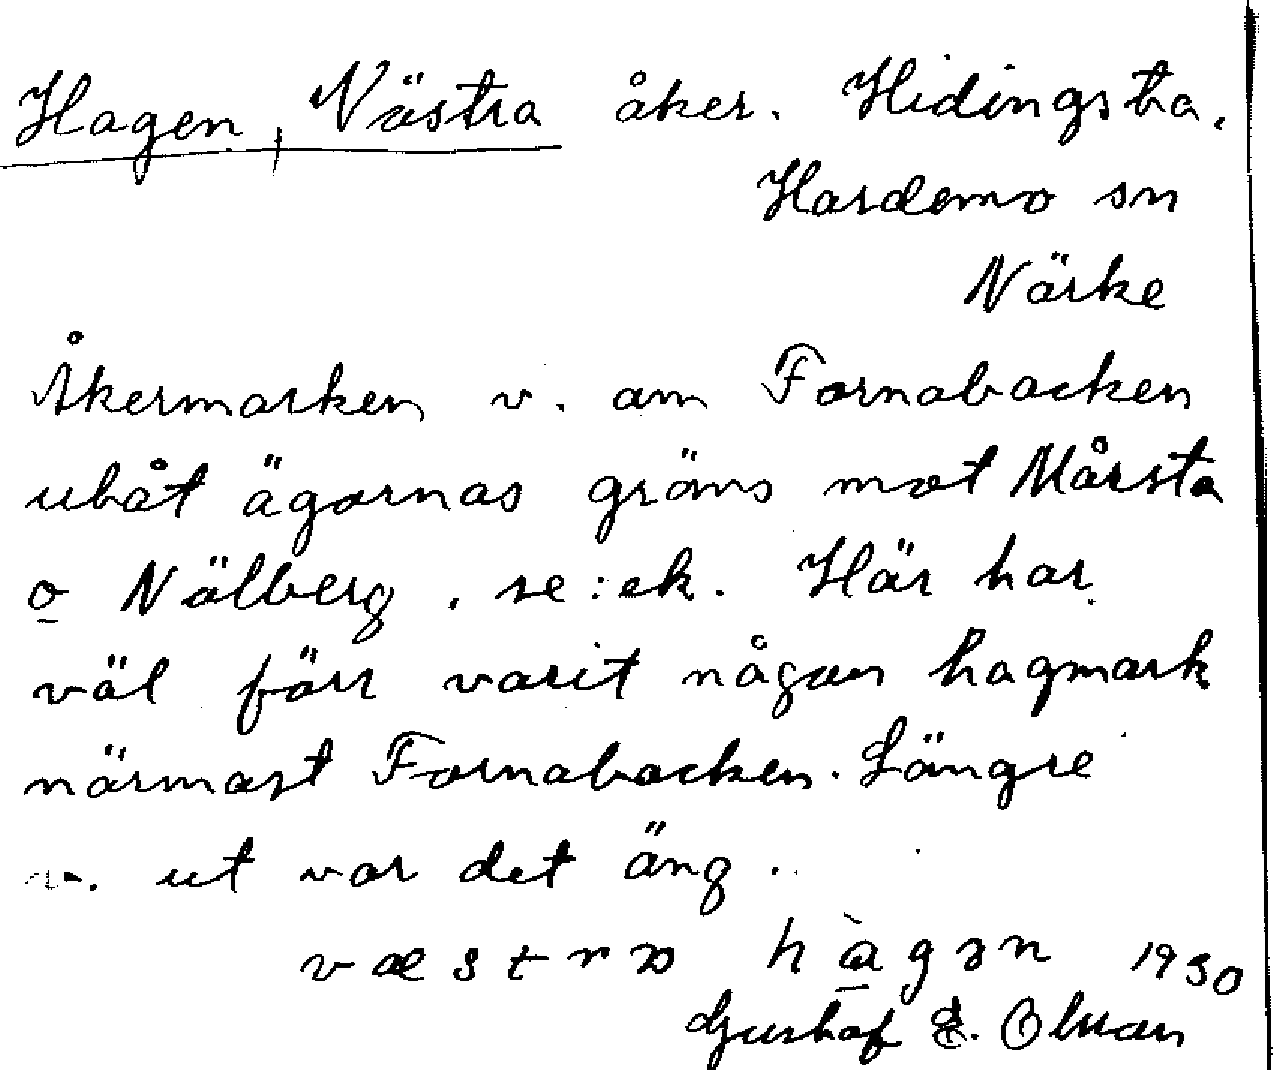 Hagen, Västra åker. Hidingsta.
Hardemo sn
Närke
Åkermarken v. om Fornabacken
utåt ägornas gräns mot Mårsta
o Nälberg. se: ek. Här har
väl förr varit någon hagmark
närmast Fornabacken. Längre
v. ut var det äng.
væstra hàgən 1930
Gustaf E. Olsson